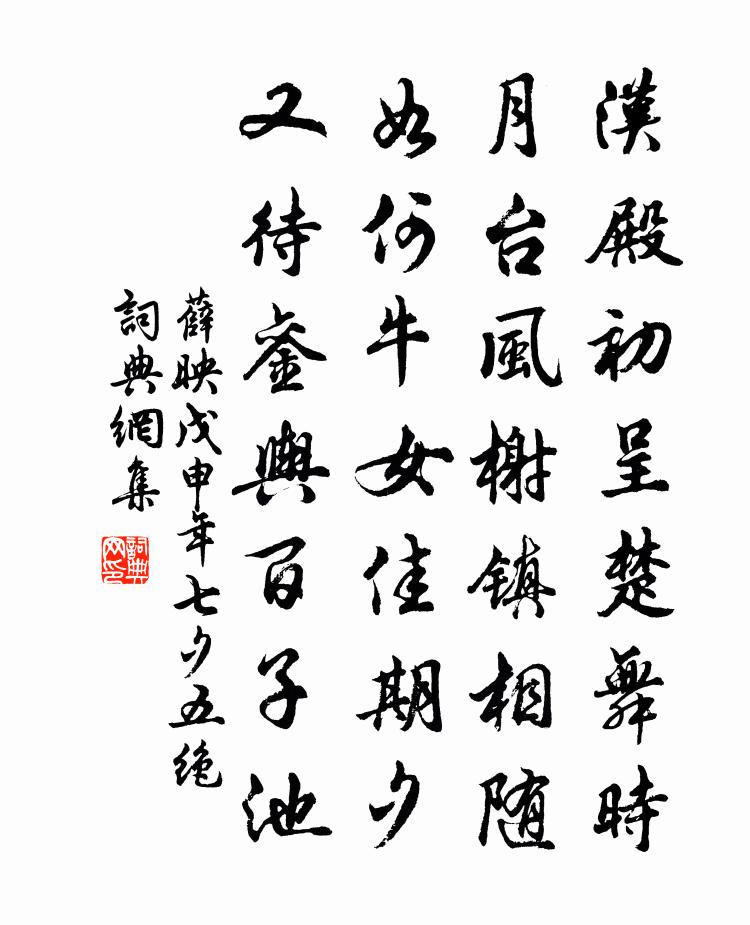 漢殿初呈楚舞時
月台風榭镇相随
如何牛女佳期夕
又待銮輿百子池
薛映戊申年七夕五绝
詞典網集
詞典网印